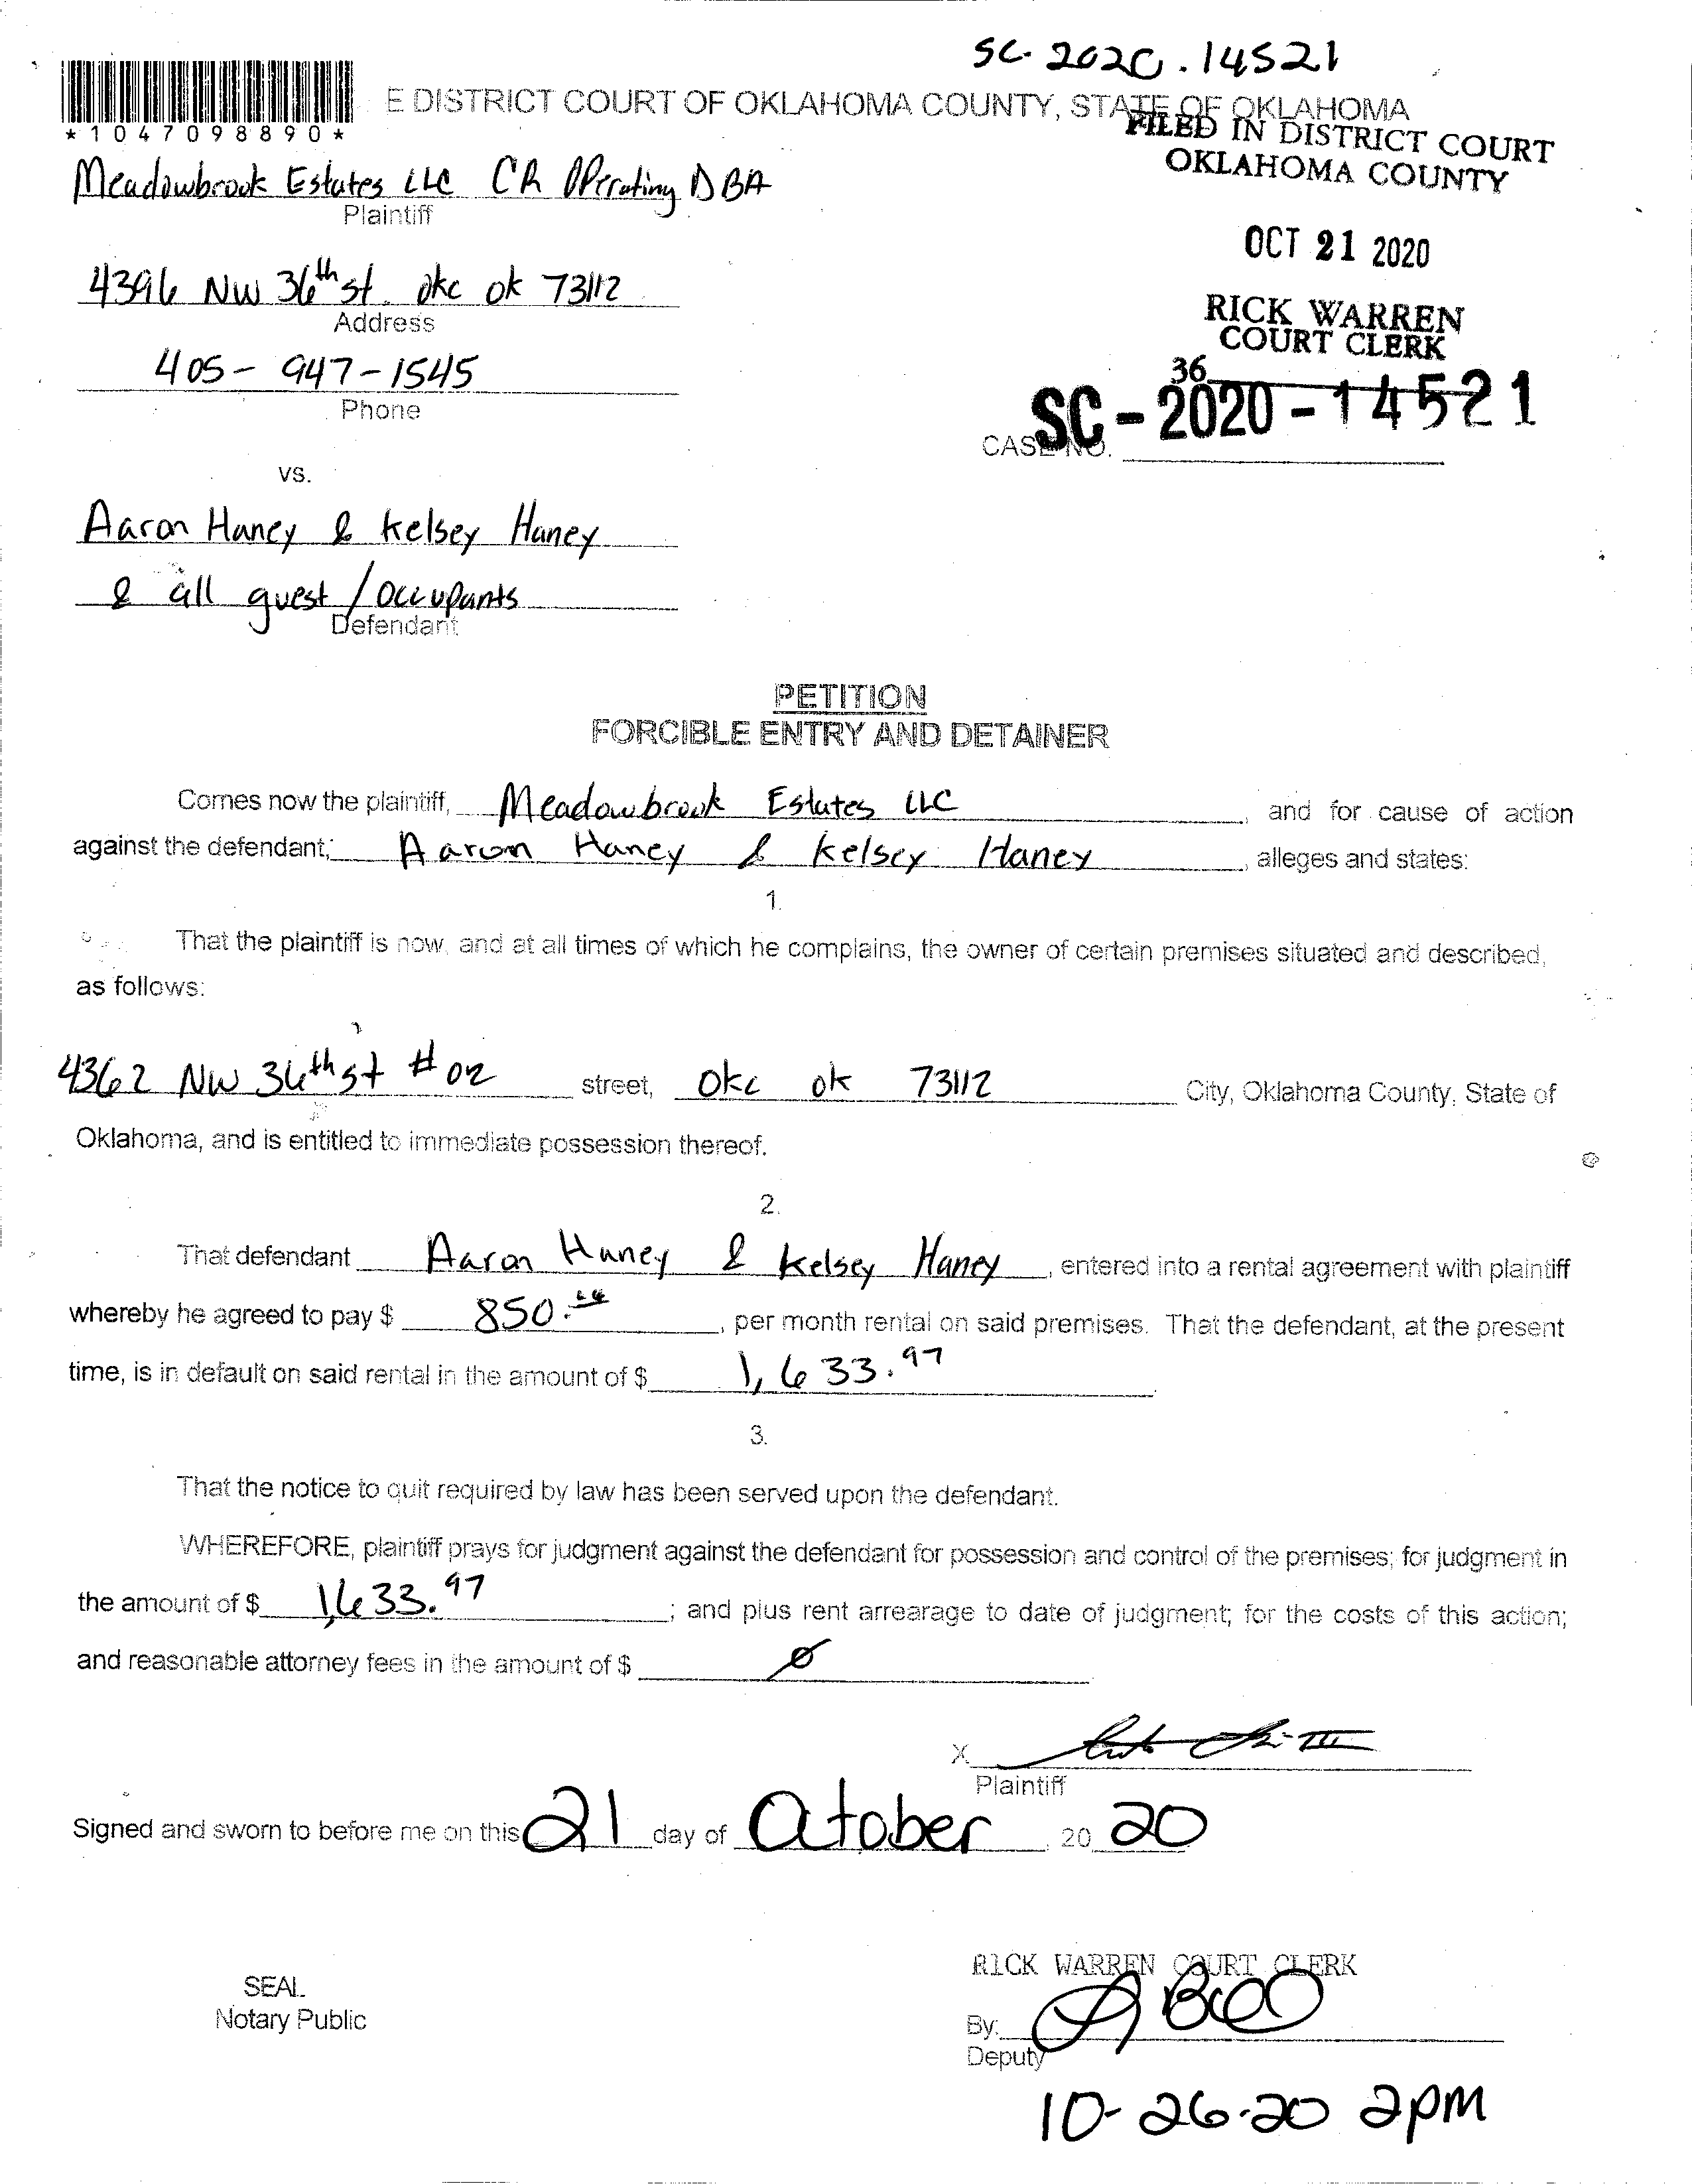 SC-2020.14521
E DISTRICT COURT OF OKLAHOMA COUNTY, STATE OF OKLAHOMA
*1047098890*
FILED IN DISTRICT COURT
OKLAHOMA COUNTY
Meadowbrook Estates LLC CR Operating DBA
Plaintiff
OCT 21 2020
4396 NW 36th st. okc ok 73112
Address
RICK WARREN
COURT CLERK
405-947-1545
Phone
36
CASE NO. SC-2020-14521
vs.
Aaron Haney & Kelsey Haney
& all guest/occupants
Defendant
PETITION
FORCIBLE ENTRY AND DETAINER
Comes now the plaintiff, Meadowbrook Estates LLC, and for cause of action
against the defendant; Aaron Haney & Kelsey Haney, alleges and states:
1.
That the plaintiff is now, and at all times of which he complains, the owner of certain premises situated and described,
as follows:
4362 NW 36th st #02 street, okc ok 73112 City, Oklahoma County, State of
Oklahoma, and is entitled to immediate possession thereof.
2.
That defendant Aaron Haney & Kelsey Haney, entered into a rental agreement with plaintiff
whereby he agreed to pay $ 850., per month rental on said premises. That the defendant, at the present
time, is in default on said rental in the amount of $ 1,633.97.
3.
That the notice to quit required by law has been served upon the defendant.
WHEREFORE, plaintiff prays for judgment against the defendant for possession and control of the premises; for judgment in
the amount of $ 1,633.97; and plus rent arrearage to date of judgment; for the costs of this action;
and reasonable attorney fees in the amount of $ Ø
X
Plaintiff
Signed and sworn to before me on this 21 day of October, 20 20
RICK WARREN COURT CLERK
SEAL
Notary Public
By:
Deputy
10-26-20 2pm